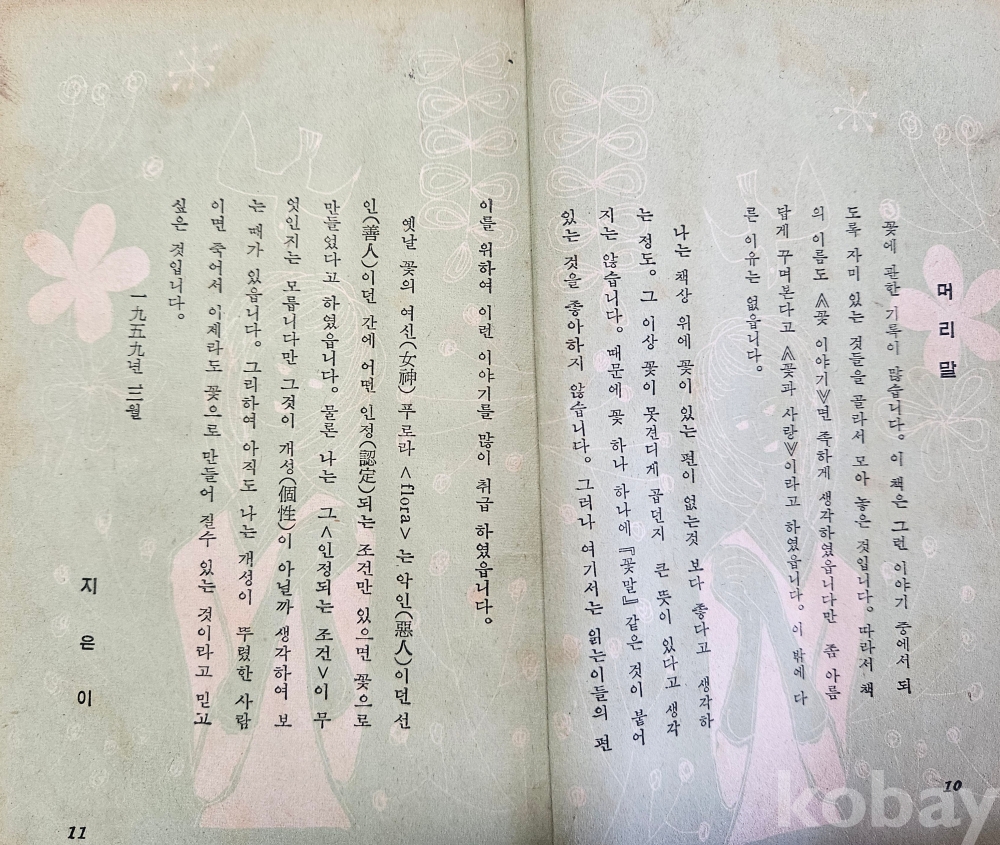 머리말
꽃에 관한 기록이 많습니다. 이 책은 그런 이야기 중에서 되
도록 자미 있는 것들을 골라서 모아 놓은 것입니다. 따라서 책
의 이름도 《꽃 이야기》면 족하게 생각하였읍니다만 좀 아름
답게 꾸며본다고 《꽃과 사랑》이라고 하였읍니다. 이 밖에 다
른 이유는 없읍니다.
나는 책상 위에 꽃이 있는 편이 없는것 보다 좋다고 생각하
는 정도. 그 이상 꽃이 못견디게 곱던지 큰 뜻이 있다고 생각
지는 않습니다. 때문에 꽃 하나 하나에 『꽃말』 같은 것이 붙어
있는 것을 좋아하지 않습니다. 그러나 여기서는 읽는이들의 편
10
이를 위하여 이런 이야기를 많이 취급 하였읍니다.
옛날 꽃의 여신(女神) 푸로라 <flora> 는 악인(惡人)이던 선
인(善人)이던 간에 어떤 인정(認定)되는 조건만 있으면 꽃으로
만들었다고 하였읍니다. 물론 나는 그 <인정되는 조건>이 무
엇인지는 모릅니다만 그것이 개성(個性)이 아닐까 생각하여 보
는 때가 있읍니다. 그리하여 아직도 나는 개성이 뚜렸한 사람
이면 죽어서 이제라도 꽃으로 만들어 질수 있는 것이라고 믿고
싶은 것입니다.
一九五九년 三월
지은이
11
kobay